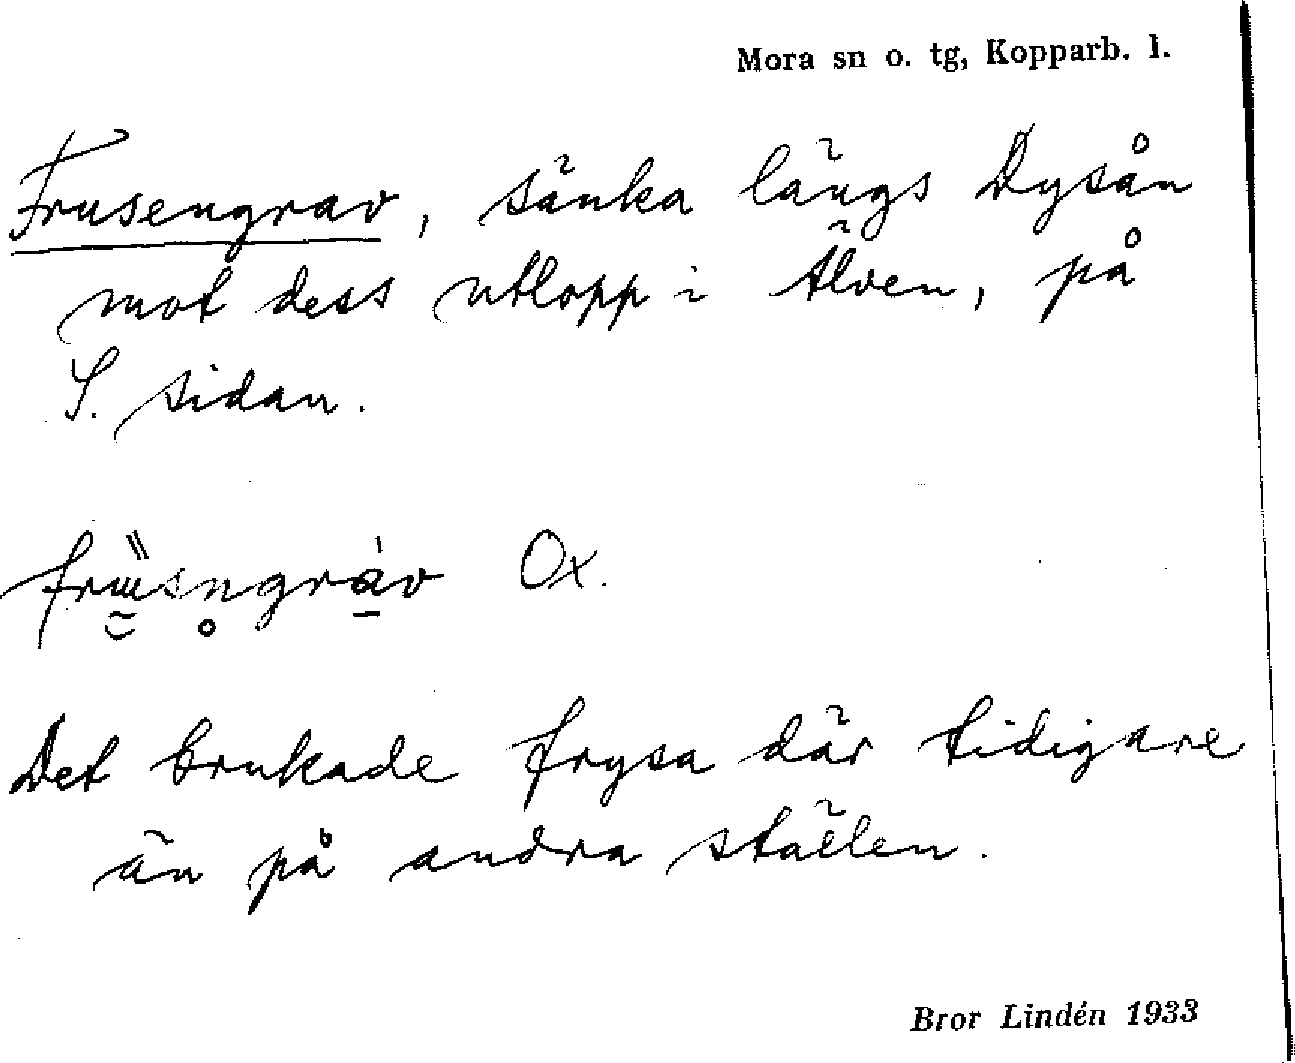 Mora sn o. tg, Kopparb. l.
Frusengrav, sänka längs Dysån
mot dess utlopp i Älven, på
S. sidan.
Ox.
Det brukade frysa där tidigare
än på andra ställen.
Bror Lindén 1933